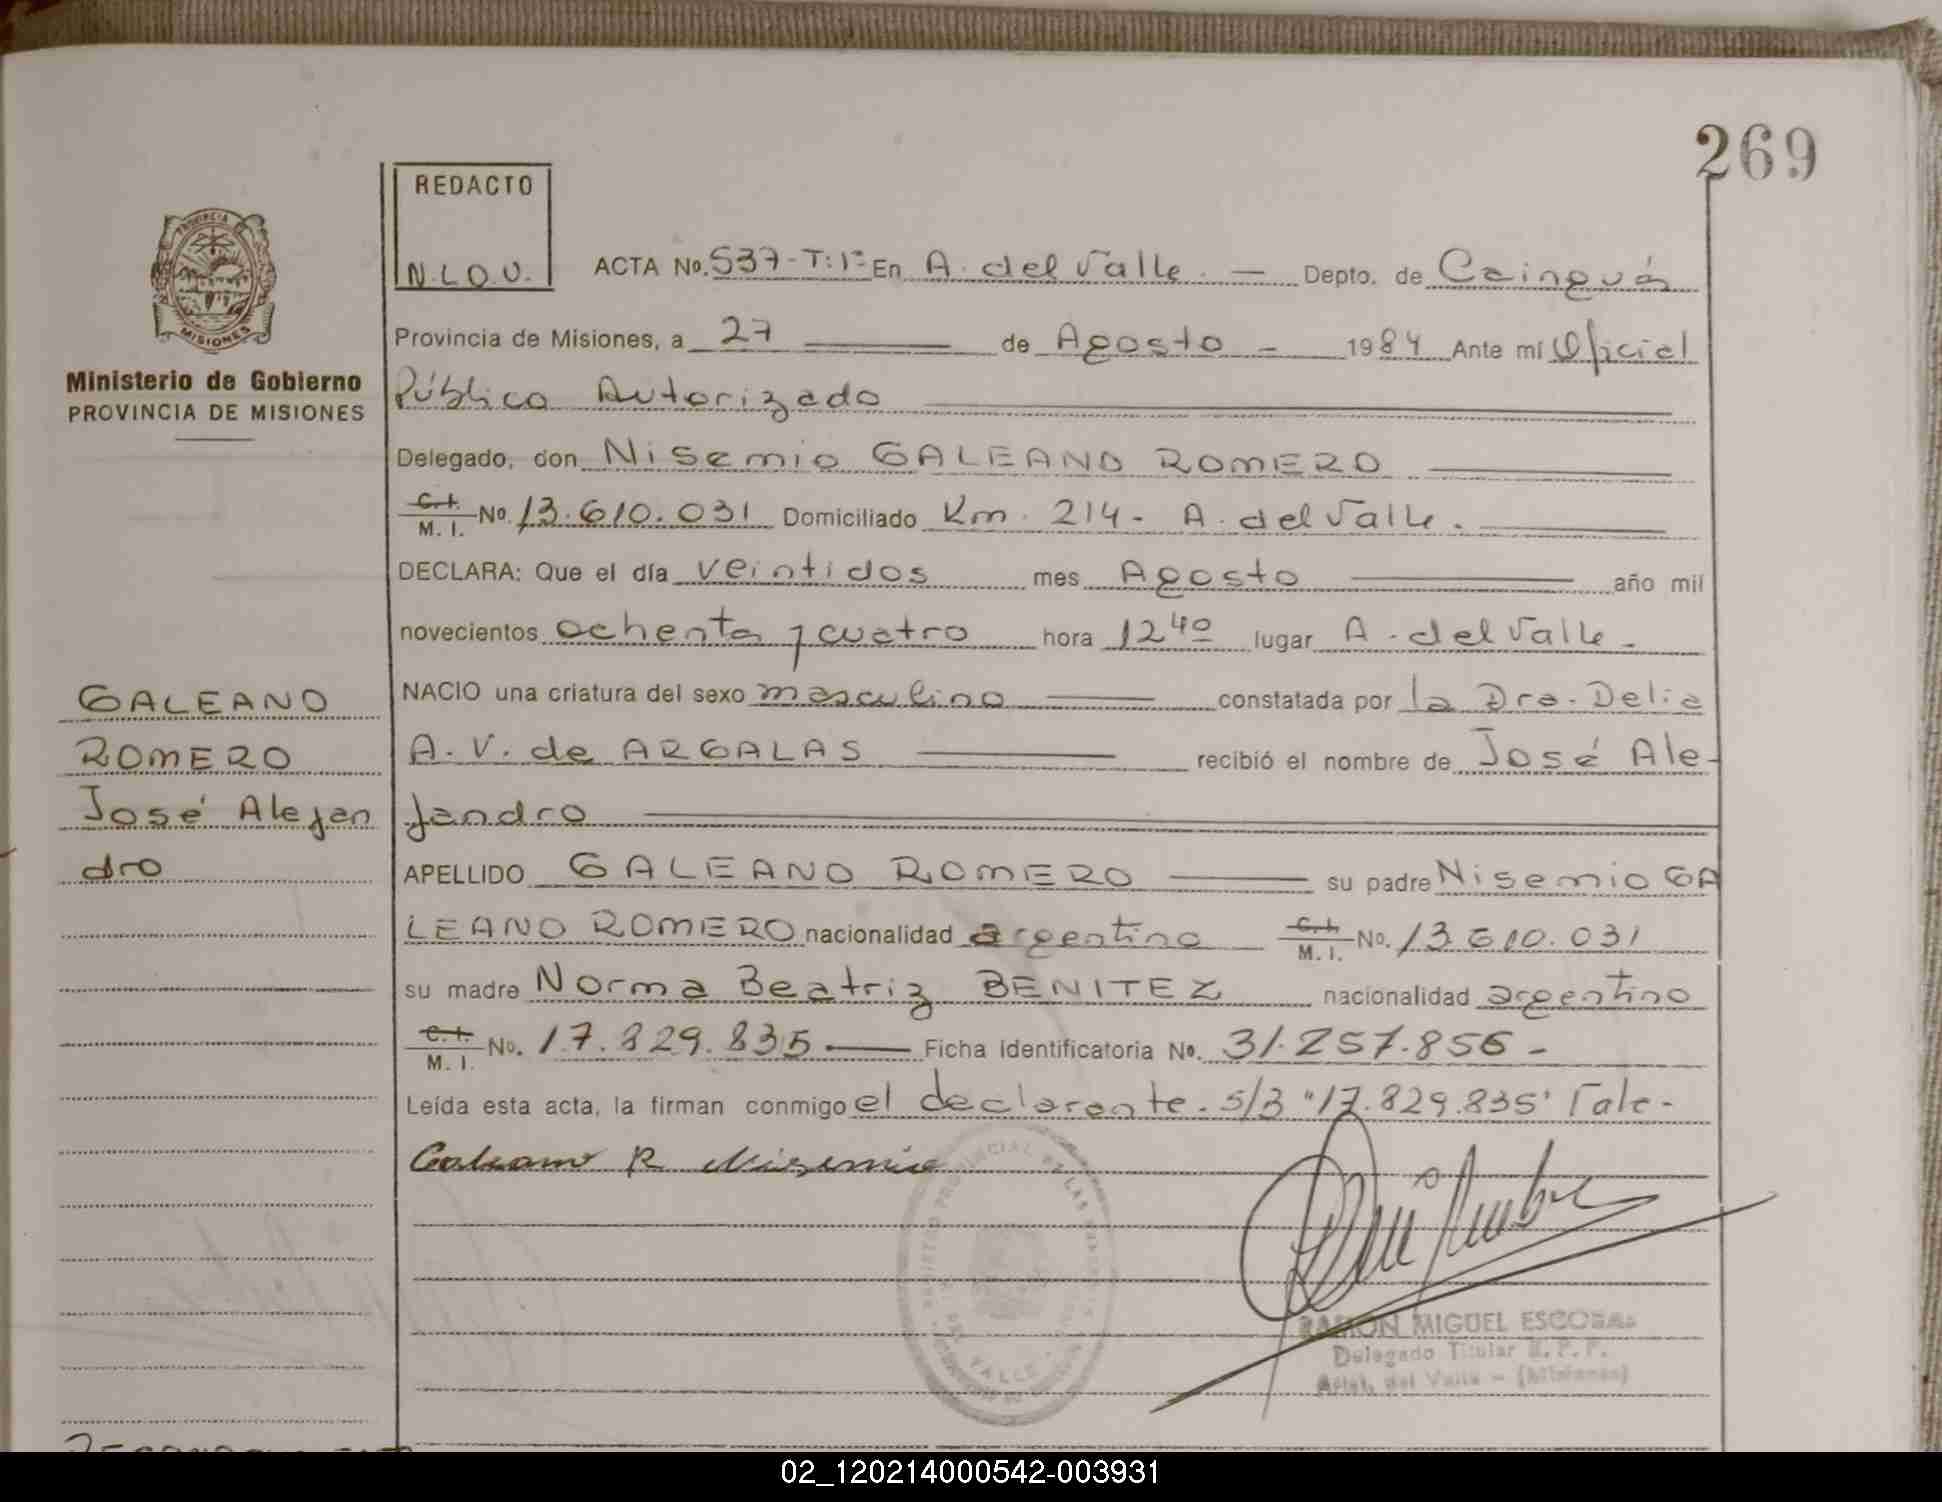 269
REDACTO
N.L.O.V.
PROVINCIA DE
MISIONES
Ministerio de Gobierno
PROVINCIA DE MISIONES
ACTA No. 537-T:1º En A. del Valle. — Depto. de Cainguás
Provincia de Misiones, a 27 — de Agosto - 1984 Ante mí Oficial
Público Autorizado
Delegado, don Nisemio GALEANO ROMERO
C.I. M.I. No. 13.610.031 Domiciliado Km. 214- A. del Valle.
DECLARA: Que el día veintidos mes Agosto — año mil
novecientos ochenta y cuatro hora 12 40 lugar A. del Valle -
NACIO una criatura del sexo masculino — constatada por la Dra. Delia
A. V. de ARGALAS — recibió el nombre de José Ale-
jandro
GALEANO
ROMERO
José Alejan
dro
APELLIDO GALEANO ROMERO — su padre Nisemio GA
LEANO ROMERO nacionalidad argentino C.I. M.I. No. 13.610.031
su madre Norma Beatriz BENITEZ nacionalidad argentino
C.I. M.I. No. 17.829.835 — Ficha identificatoria No. 31.257.856 -
Leída esta acta, la firman conmigo el declarante. S/B "17.829.835" Vale-
Galeano R Nisemio
RAMON MIGUEL ESCOBAR
Delegado Titular R. P. P.
Arist. del Valle - (Misiones)
02_120214000542-003931